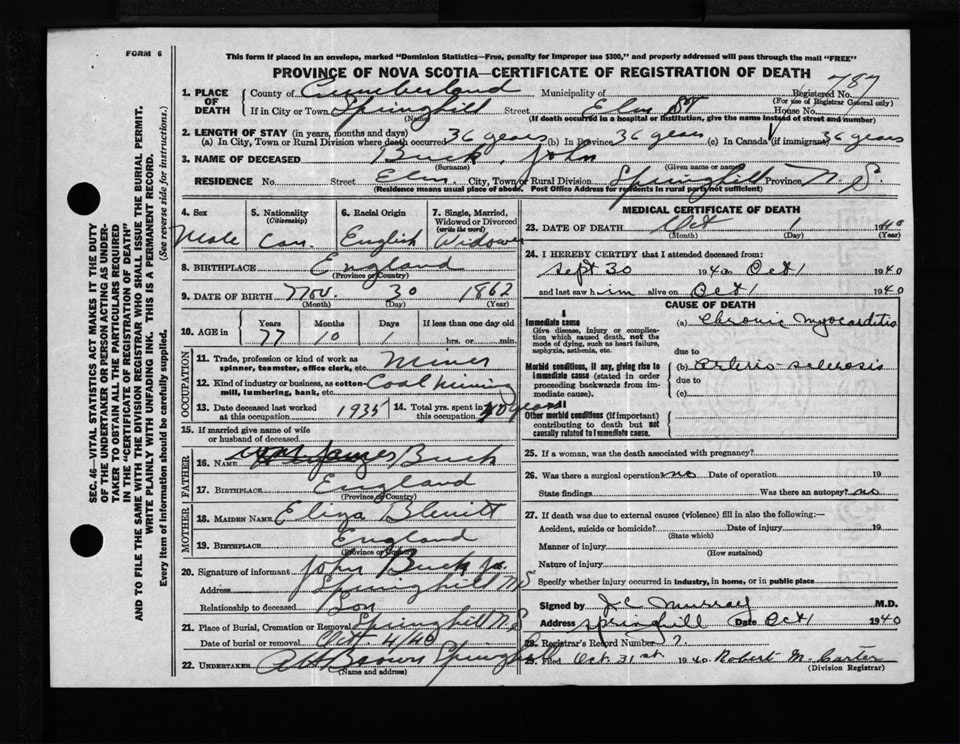 FORM 6
This form if placed in an envelope, marked "Dominion Statistics—Free, penalty for improper use $300," and properly addressed will pass through the mail "FREE"
PROVINCE OF NOVA SCOTIA—CERTIFICATE OF REGISTRATION OF DEATH
787
1. PLACE OF DEATH
County of Cumberland Municipality of Registered No.
(For use of Registrar General only)
If in City or Town Springhill Street Elm St House No.
(Name) (If death occurred in a hospital or institution, give the name instead of street and number)
2. LENGTH OF STAY (in years, months and days)
(a) In City, Town or Rural Division where death occurred 36 years (b) In Province 36 years (c) In Canada (if immigrant) 36 years
3. NAME OF DECEASED Buck, John
(Surname) (Given name or names)
RESIDENCE No. Street Elm City, Town or Rural Division Springhill Province N. S.
(Residence means usual place of abode. Post Office Address for residents in rural parts not sufficient)
4. Sex Male
5. Nationality (Citizenship) Can.
6. Racial Origin English
7. Single, Married, Widowed or Divorced (write the word) Widower
8. BIRTHPLACE England
(Province or Country)
9. DATE OF BIRTH Nov. 30 1862
(Month) (Day) (Year)
10. AGE in Years 77 Months 10 Days 1 If less than one day old hrs. or min.
OCCUPATION
11. Trade, profession or kind of work as spinner, teamster, office clerk, etc. Miner
12. Kind of industry or business, as cotton-mill, lumbering, bank, etc. Coal Mining
13. Date deceased last worked at this occupation 1935
14. Total yrs. spent in this occupation years
15. If married give name of wife or husband of deceased
FATHER
16. NAME James Buck
17. BIRTHPLACE England
(Province or Country)
MOTHER
18. MAIDEN NAME Eliza
19. BIRTHPLACE England
(Province or Country)
20. Signature of informant John Buck Jr.
Address Springhill N S
Relationship to deceased Son
21. Place of Burial, Cremation or Removal Springhill N.S
Date of burial or removal Oct. 4/40
22. UNDERTAKER A H Brown Springhill
(Name and address)
MEDICAL CERTIFICATE OF DEATH
23. DATE OF DEATH Oct 1 1940
(Month) (Day) (Year)
24. I HEREBY CERTIFY that I attended deceased from:
Sept 30 1940 to Oct 1 1940
and last saw him alive on Oct 1 1940
CAUSE OF DEATH
I
Immediate cause
Give disease, injury or complication which caused death, not the mode of dying, such as heart failure, asphyxia, asthenia, etc.
(a) Chronic Myocarditis
due to
Morbid conditions, if any, giving rise to immediate cause (stated in order proceeding backwards from immediate cause).
(b) Arterio-sclerosis
due to
(c)
II
Other morbid conditions (if important) contributing to death but not causally related to immediate cause.
25. If a woman, was the death associated with pregnancy?
26. Was there a surgical operation no Date of operation 19
State findings Was there an autopsy? no
27. If death was due to external causes (violence) fill in also the following:—
Accident, suicide or homicide? Date of injury 19
(State which)
Manner of injury
(How sustained)
Nature of injury
Specify whether injury occurred in industry, in home, or in public place
Signed by J C Murray M.D.
Address Springhill Date Oct 1 1940
28. Registrar's Record Number 7.
29. Filed Oct. 31st. 1940. Robert M. Carter
(Division Registrar)
SEC. 46—VITAL STATISTICS ACT MAKES IT THE DUTY
OF THE UNDERTAKER OR PERSON ACTING AS UNDER-
TAKER TO OBTAIN ALL THE PARTICULARS REQUIRED
IN THE "CERTIFICATE OF REGISTRATION OF DEATH"
AND TO FILE THE SAME WITH THE DIVISION REGISTRAR WHO SHALL ISSUE THE BURIAL PERMIT.
WRITE PLAINLY WITH UNFADING INK. THIS IS A PERMANENT RECORD.
Every item of information should be carefully supplied. (See reverse side for instructions.)